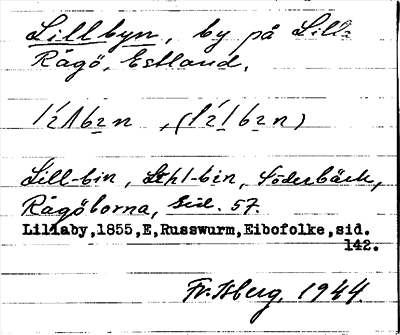 Lillbyn, by på Lill-
Rågö, Estland.
Lill-bin, Lihl-bin, Söderbäck,
Rågöborna, sid. 57.
Lillaby,1855,E,Russwurm,Eibofolke,sid.
142.
Fr. Isberg, 1944.